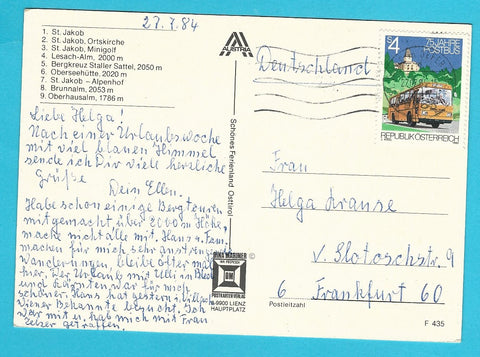 27.7.84
1 St. Jakob
2 St. Jakob, Ortskirche
3 St. Jakob, Minigolf
4 Lesach-Alm, 2000 m
5 Bergkreuz Staller Sattel, 2050 m
6 Oberseehütte, 2020 m
7 St. Jakob - Alpenhof
8 Brunnalm, 2053 m
9 Oberhausalm, 1786 m
Liebe Helga!
Nach einer Urlaubswoche
mit viel blauen Himmel
sende ich Dir viel herzliche
Grüße
Dein Ellen.
Habe schon einige Bergtouren
mitgemacht, über 2000 m Höhe,
mache nicht alle mit. Hans + Fam.
machen für mich sehr anstrengende
Wanderungen, bleibe öfter mal
hier. Der Urlaub mit Ulli in
und Kärnten war für mich
schöner. Hans hat gestern i. Villach
Wiener Bekannte besucht. Ich
war mit u. hab mich mit Frau
Zelzer getroffen.
AUSTRIA
Schönes Ferienland Osttirol
©
DINA MARINER
DM
POSTKARTENVERLAG
A-9900 LIENZ
HAUPTPLATZ
S 4
75 JAHRE
POSTBUS
REPUBLIK ÖSTERREICH
Deutschland
Frau
Helga Krause
v. Slotoschstr. 9
6 Frankfurt 60
Postleitzahl
F 435